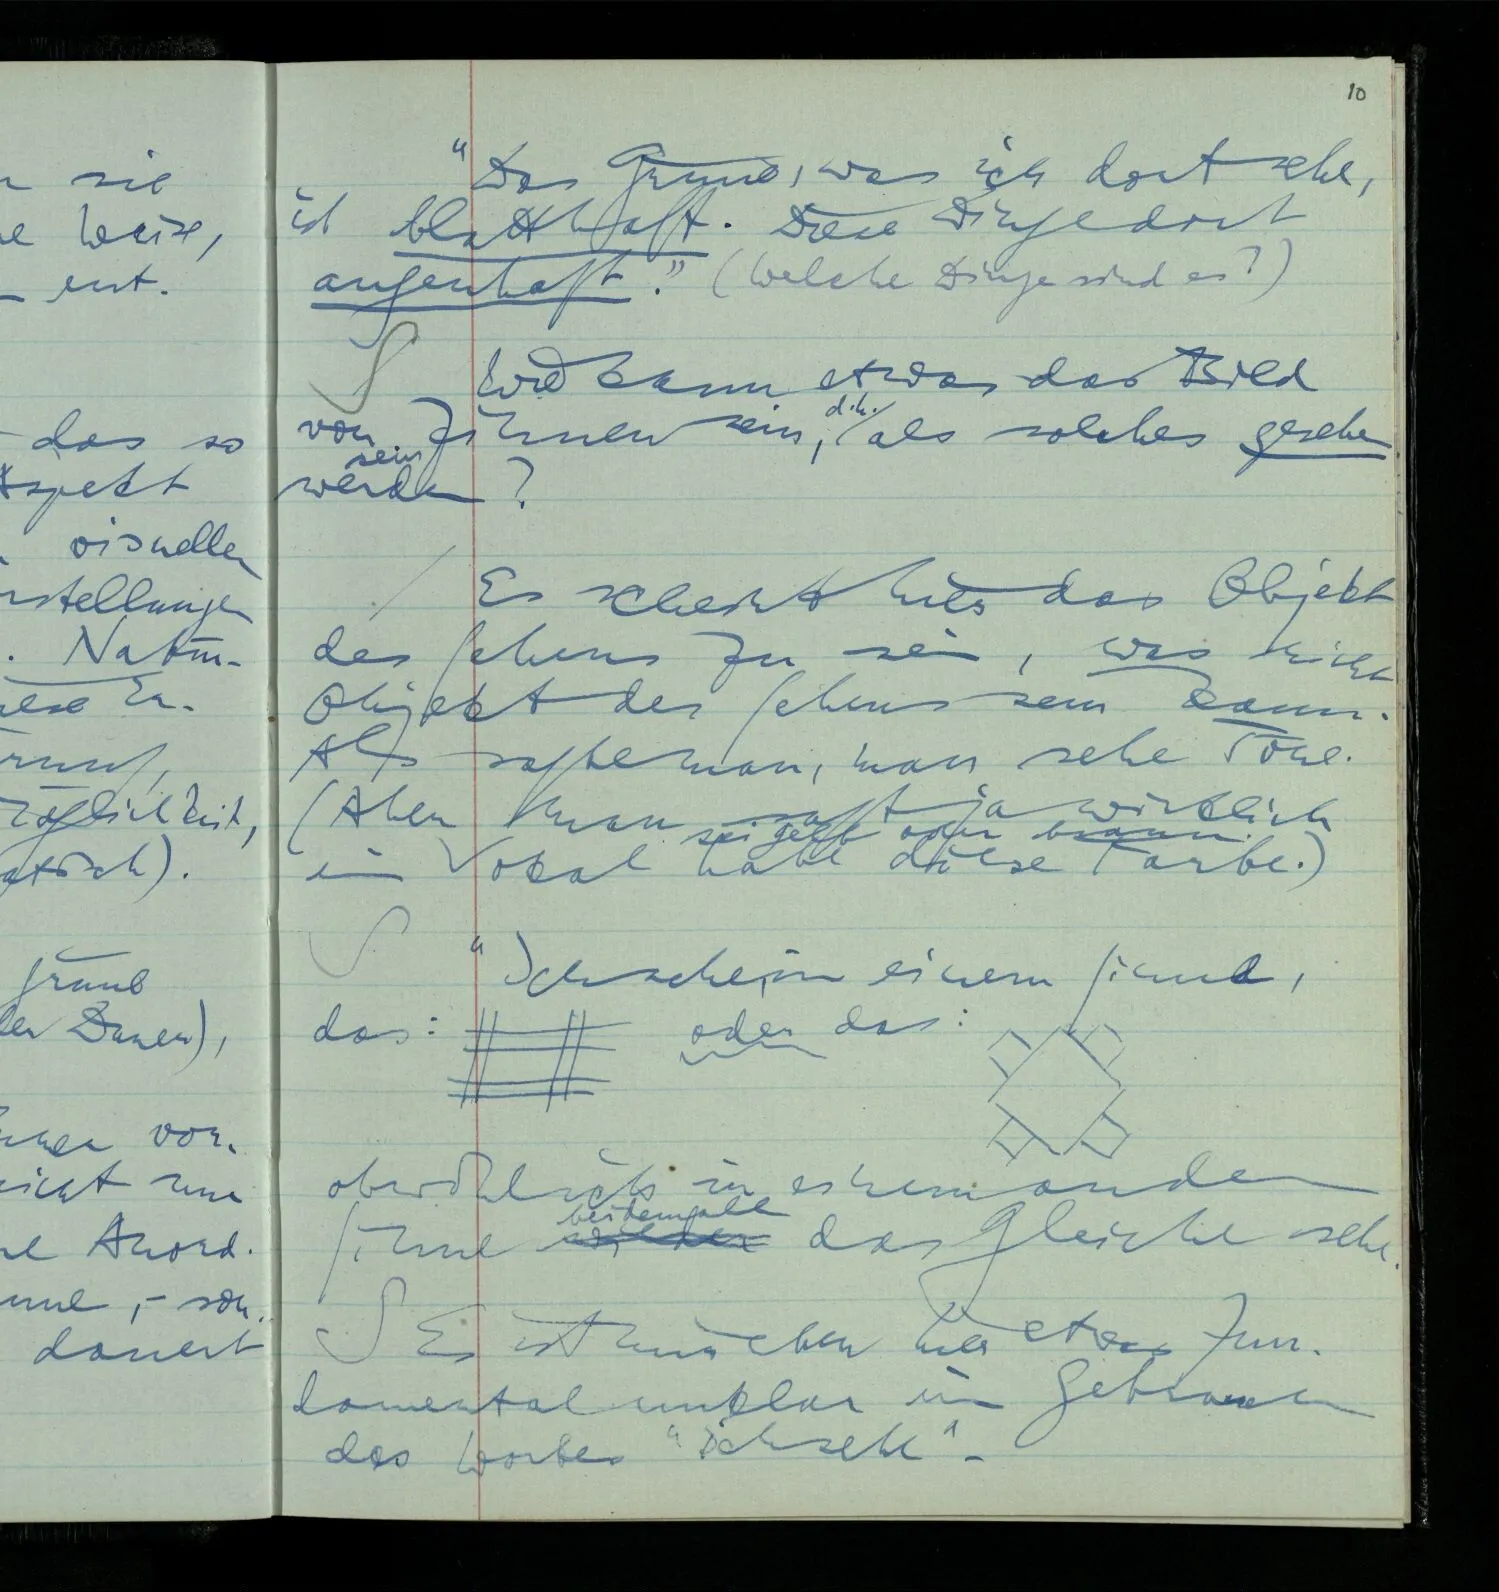 n sie
ne Weise,
ent.
das so
Aspekt
visuellen
rstellungen
. Natür-
iese Er-
öglichkeit,
atisch).
grund
der Dauer),
vor.
nicht nur
ne Anord-
nne, – son-
dauert
10
"Das Grüne, was ich dort sehe,
ist blatthaft. Diese Dinge dort
augenhaft." (Welche Dinge sind es?)
∫ Wie kann etwas das Bild
d.h.
von Ihnen sein, / als solches gesehen
sein
werden ?
/ Es scheint hier das Objekt
des Sehens zu sein, was nicht
Objekt des Sehens sein kann.
Als sagte man, man sehe Töne.
(Aber man sagt ja wirklich
sei gelb oder braun
ein Vokal habe diese Farbe.)
∫ "Ich sehe, in einem Sinne,
das: oder das:
obwohl ich in einem anderen
beidemale
Sinne das Gleiche sehe.
∫ Es ist uns eben hier etwas fun-
damental unklar im Gebrauch
des Wortes "ich sehe".